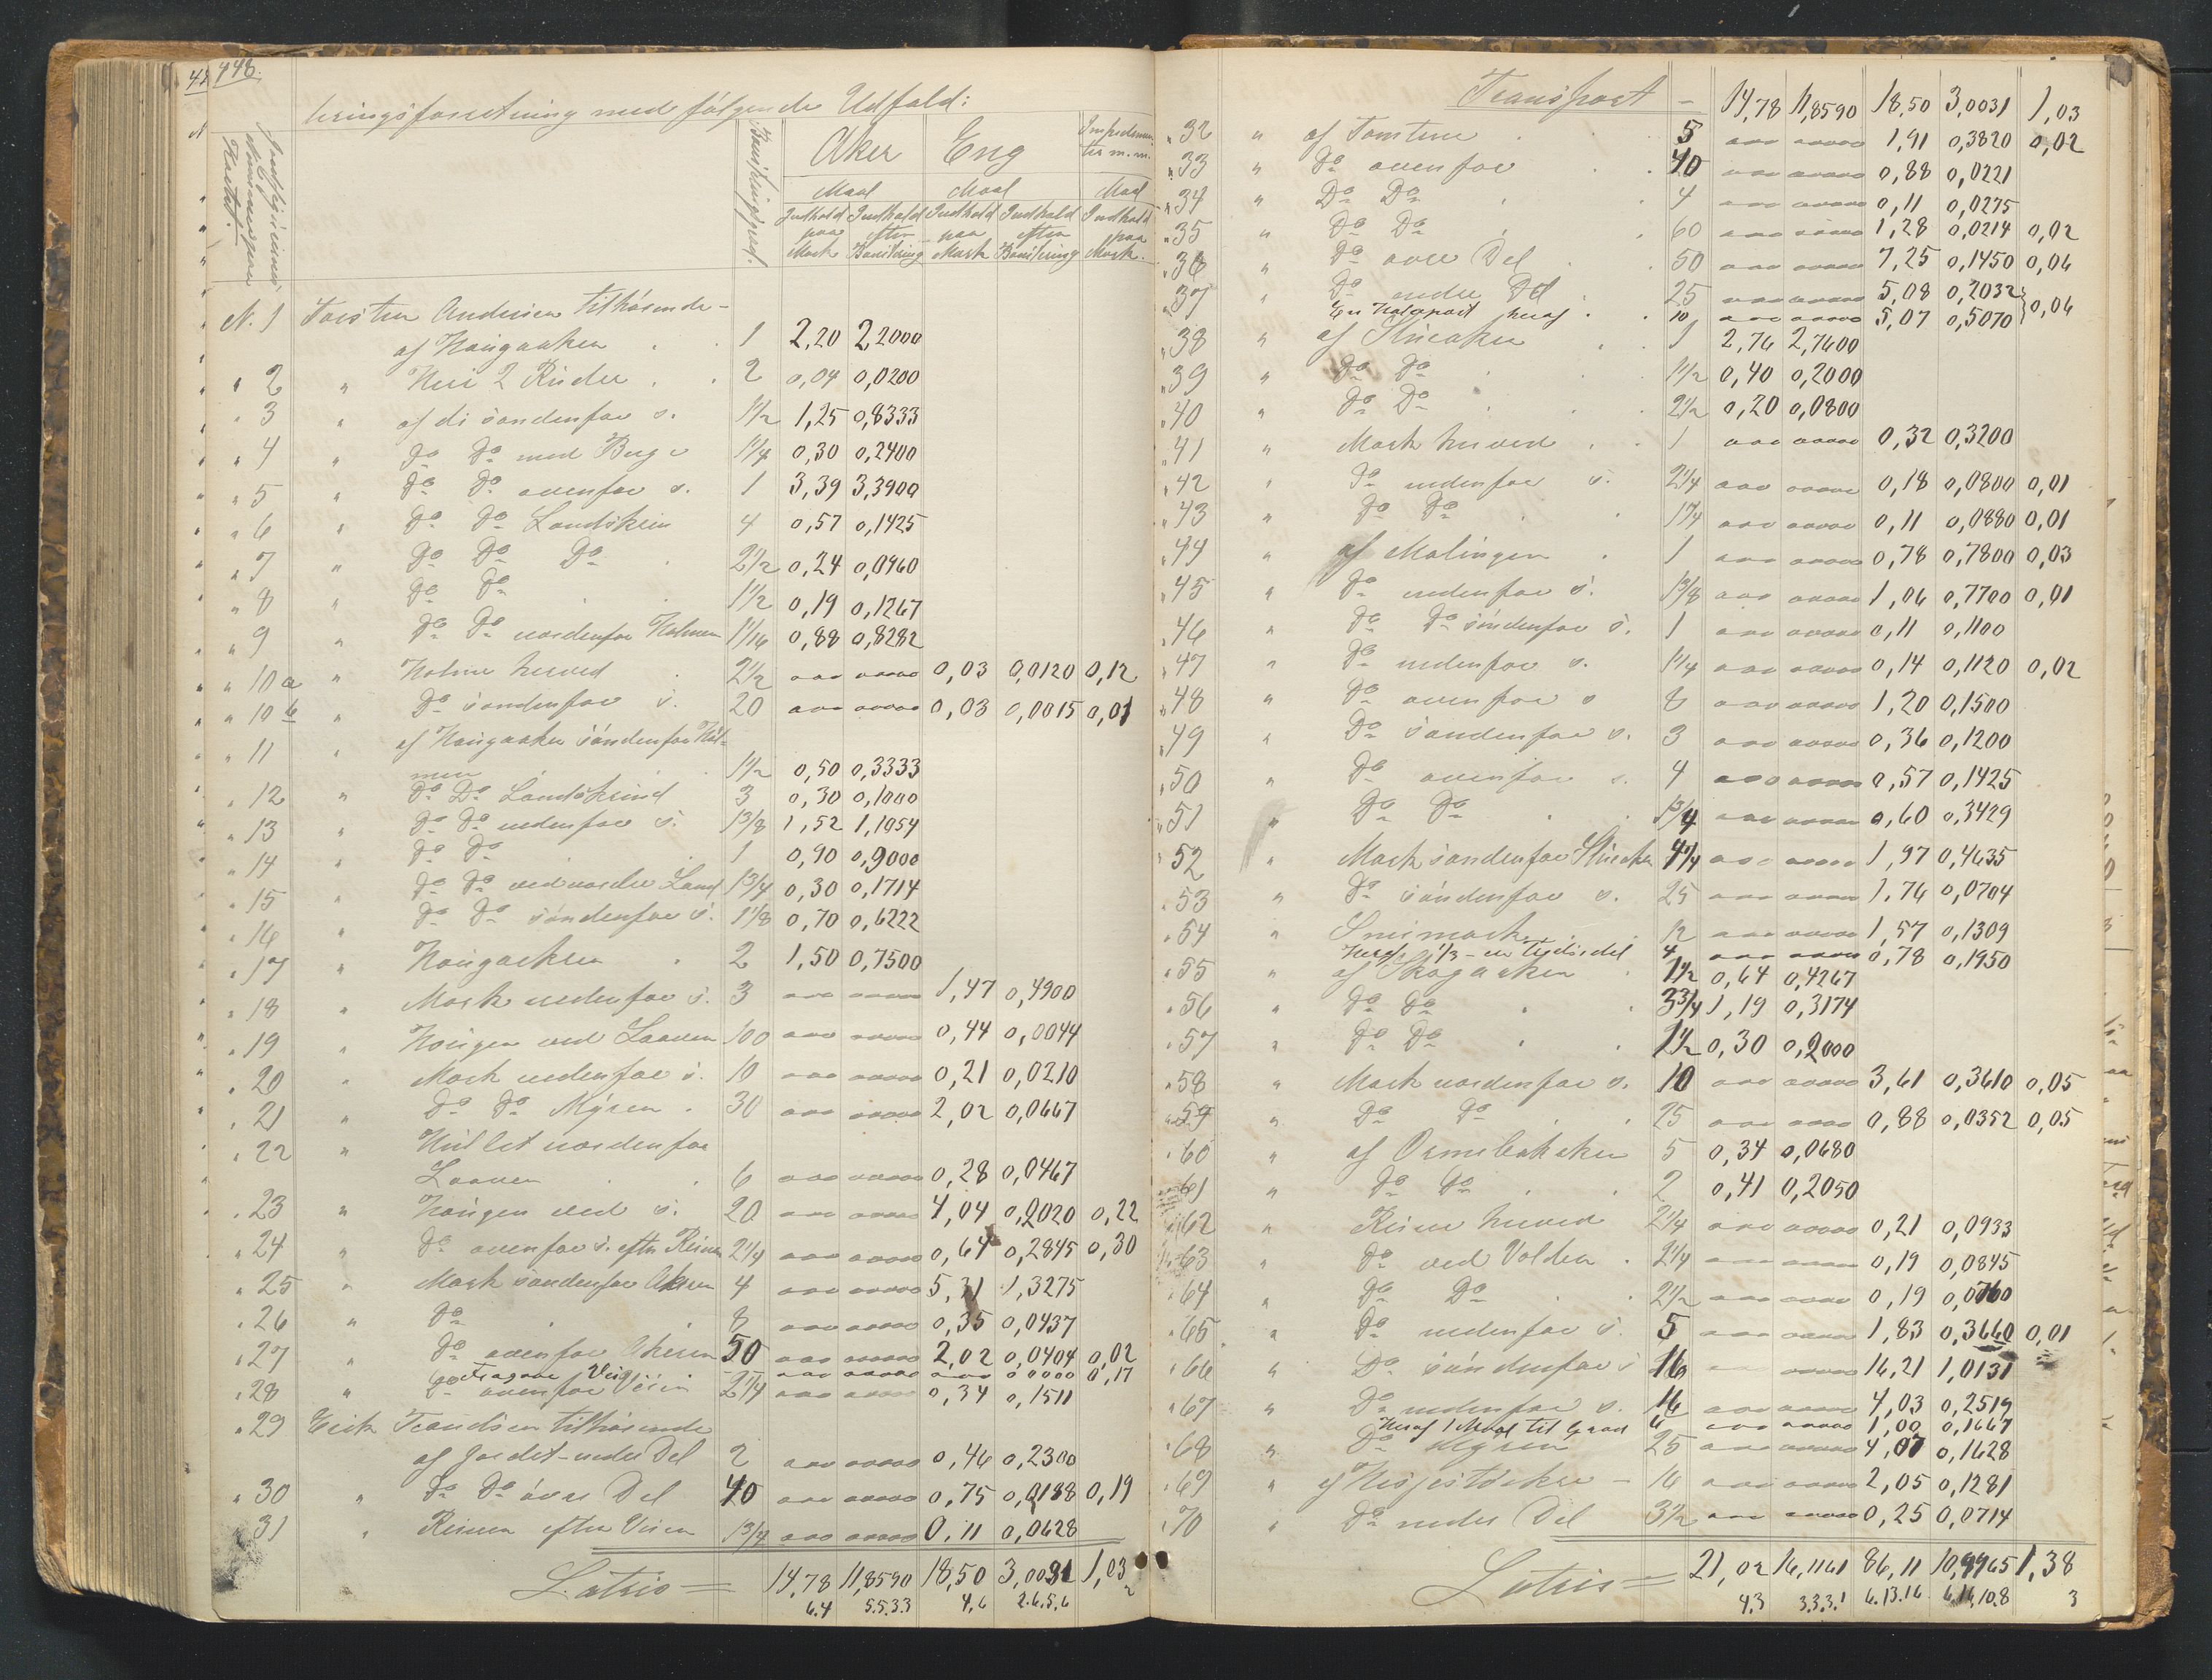 448.
kringsforretning med følgende Udfald:
Aker Eng Impedimenter m.m.
Maal Maal Maal
Indhold Indhold Indhold Indhold Indhold
paa efter paa efter paa
Mark Bonitering Mark Bonitering Mark.
N. 1 Torsten Andersen tilhørende
af Haugaaker 1 2,20 2,2000
" 2 " 2 Ruder 2 0,04 0,0200
" 3 " af di søndenfor s. 1½ 1,25 0,8333
" 4 " Do Do med Berge 1¼ 0,30 0,2400
" 5 " Do Do ovenfor s. 1 3,39 3,3900
" 6 " Do Do Landskein 4 0,57 0,1425
" 7 " Do Do Do 2½ 0,24 0,0960
" 8 " Do Do 1½ 0,19 0,1267
" 9 " Do Do nordenfor Holmen 1 1/16 0,88 0,8282
" 10 a " Holme herved 2½ 0,03 0,0120 0,12
" 10 b " Do søndenfor s. 20 0,03 0,0015 0,01
" 11 " af Haugaaker søndenfor Hol-
men 1½ 0,50 0,3333
" 12 " Do Do Landskeind 3 0,30 0,1000
" 13 " Do Do nedenfor s. 1 3/8 1,52 1,1054
" 14 " Do Do 1 0,90 0,9000
" 15 " Do Do ved nordre Land 1¾ 0,30 0,1714
" 16 " Do Do søndenfor s. 1 1/8 0,70 0,6222
" 17 " Haugaekren 2 1,50 0,7500
" 18 " Mark nedenfor s. 3 1,47 0,4900
" 19 " Haugen ved Laaven 100 0,44 0,0044
" 20 " Mark nedenfor s. 10 0,21 0,0210
" 21 " Do Do Myren 30 2,02 0,0667
" 22 " nordenfor
Laaven 6 0,28 0,0467
" 23 " Haugen ved s. 20 4,04 0,2020 0,22
" 24 " Do ovenfor s. efter Reinen 2¼ 0,64 0,2845 0,30
" 25 " Mark søndenfor Akren 4 5,31 1,3275
" 26 " Do 8 0,35 0,0437
" 27 " Do ovenfor Akeren 50 2,02 0,0404 0,02
Vei 0,17
" 28 " Do ovenfor Veien 2¼ 0,34 0,1511
" 29 Erik Trondsen tilhørende
af Jordet nedre Del 2 0,46 0,2300
" 30 " Do Do øvre Del 40 0,75 0,0188 0,19
" 31 " Reinen efter Veien 1¾ 0,11 0,0628
Latris = 14,78 11,8590 18,50 3,0031 1,03
6.4 5.5.3.3 4,6 2.6.5.6 2
Transport - 14,78 11,8590 18,50 3,0031 1,03
" 32 " af Tomterne 5 1,91 0,3820 0,02
" 33 " Do ovenfor 40 0,88 0,0221
" 34 " Do Do 4 0,11 0,0275
" 35 " Do Do 60 1,28 0,0214 0,02
" 36 " Do øvre Del 50 7,25 0,1450 0,06
" 37 " Do nedre Del 25 5,08 0,2032
En Halvpart heraf 10 5,07 0,5070 } 0,06
" 38 " af Stueaker 1 2,76 2,7600
" 39 " Do Do 1½ 0,40 0,2000
" 40 " Do Do 2½ 0,20 0,0800
" 41 " Mark herved 1 0,32 0,3200
" 42 " Do nedenfor s. 2¼ 0,18 0,0800 0,01
" 43 " Do Do 1¼ 0,11 0,0880 0,01
" 44 " af Malingen 1 0,78 0,7800 0,03
" 45 " Do nedenfor s. 1 3/8 1,06 0,7700 0,01
" 46 " Do Do søndenfor s. 1 0,11 0,1100
" 47 " Do nedenfor s. 1¼ 0,14 0,1120 0,02
" 48 " Do ovenfor s 8 1,20 0,1500
" 49 " Do søndenfor s. 3 0,36 0,1200
" 50 " Do ovenfor s. 4 0,57 0,1425
" 51 " Do Do 1¾ 0,60 0,3429
" 52 " Mark søndenfor Stueaker 4¼ 1,97 0,4635
" 53 " Do søndenfor s. 25 1,76 0,0704
" 54 " 12 1,57 0,1309
Heraf 1/3 - en Trediedel 4 0,78 0,1950
" 55 " af Skogaaker 1½ 0,64 0,4267
" 56 " Do Do 3¾ 1,19 0,3174
" 57 " Do Do 1½ 0,30 0,2000
" 58 " Mark nordenfor s. 10 3,61 0,3610 0,05
" 59 " Do Do 25 0,88 0,0352 0,05
" 60 " af 5 0,34 0,0680
" 61 " Do Do 2 0,41 0,2050
" 62 " Reine herved 2¼ 0,21 0,0933
" 63 " Do ved Volden 2¼ 0,19 0,0845
" 64 " Do Do 2½ 0,19 0,0760
" 65 " Do nedenfor s. 5 1,83 0,3660 0,01
" 66 " Do søndenfor s 16 16,21 1,0131
" 67 " Do nedenfor s. 16 4,03 0,2519
Heraf 1 Maal til 6 1,00 0,1667
" 68 " Do Myren 25 4,07 0,1628
" 69 " af 16 2,05 0,1281
" 70 " Do nedre Del 3½ 0,25 0,0714
Latris = 21,02 16,1161 86,11 10,9965 1,38
4.3 3.3.3.1 6.13.16 6.16.10.8 3